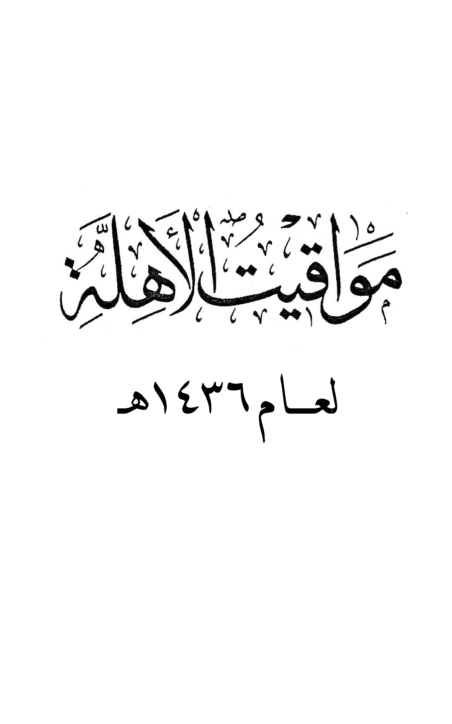 مَوَاقِيتُ الأَهِلَّةِ
لعام ١٤٣٦هـ